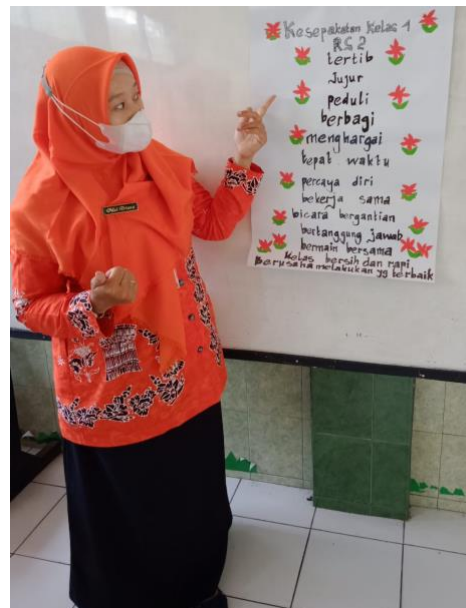 Kesepakatan Kelas 1
RS 2
tertib
Jujur
peduli
berbagi
menghargai
tepat waktu
percaya diri
bekerja sama
bicara bergantian
bertanggung jawab
bermain bersama
Kelas bersih dan rapi
Berusaha melakukan yg terbaik